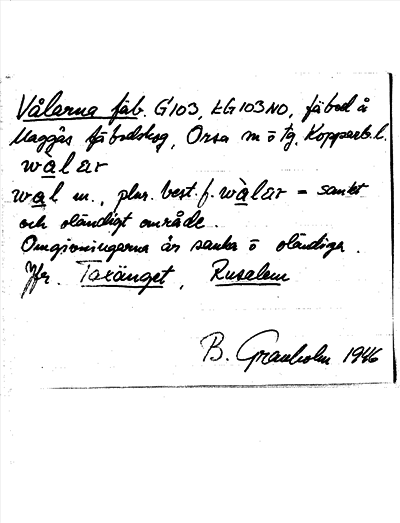 Vålarna fäb. G103, LG103NO, fäbod å
Maggås fäbodskog, Orsa m o tg. Kopparb. l.
wàlär
wal m., plur. best. f. wàlär = sankt
och oländigt område.
Omgivningarna är sanka o oländiga.
Jfr. Taxänget, Rusalem
B. Granholm 1946